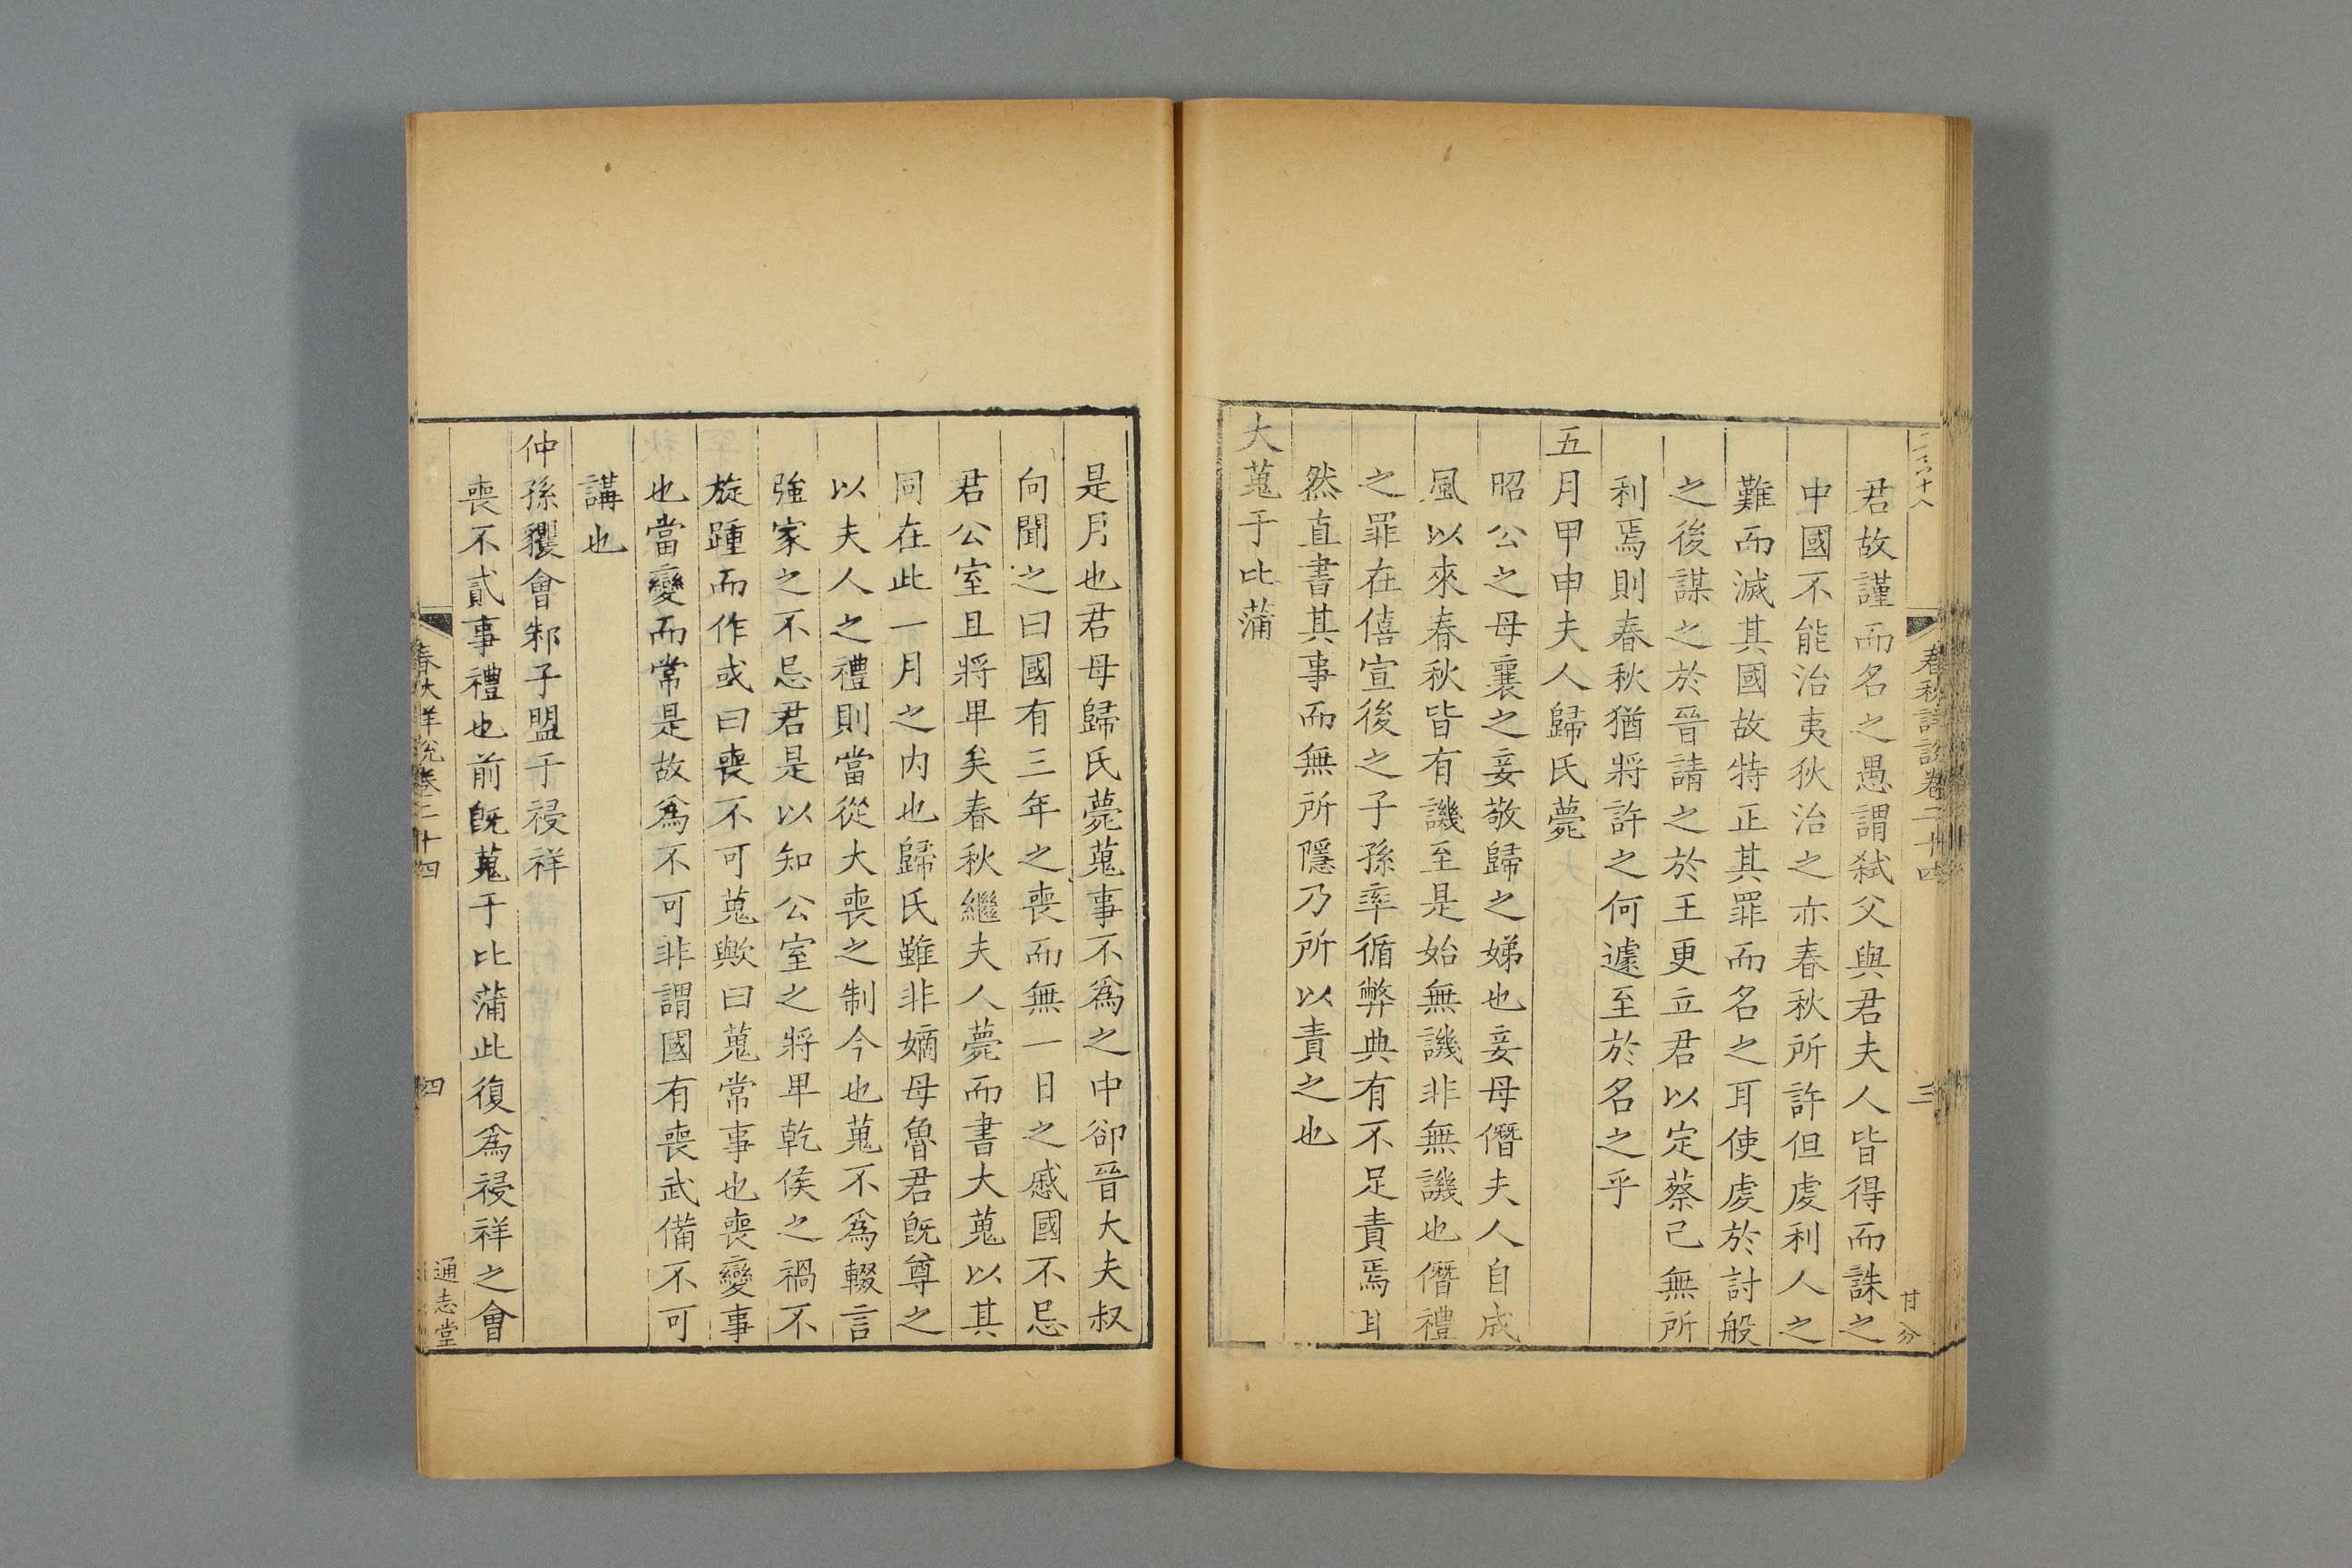 春秋詳說卷二十四
三
甘分
君故謹而名之愚謂弒父與君夫人皆得而誅之
中國不能治夷狄治之亦春秋所許但虔利人之
難而滅其國故特正其罪而名之耳使虔於討般
之後謀之於晉請之於王更立君以定蔡己無所
利焉則春秋猶將許之何遽至於名之乎
五月甲申夫人歸氏薨
昭公之母襄之妾敬歸之娣也妾母僭夫人自成
風以來春秋皆有譏至是始無譏非無譏也僭禮
之罪在僖宣後之子孫率循弊典有不足責焉耳
然直書其事而無所隱乃所以責之也
大蒐于比蒲
是月也君母歸氏薨蒐事不爲之中卻晉大夫叔
向聞之曰國有三年之喪而無一日之慼國不忌
君公室且將卑矣春秋繼夫人薨而書大蒐以其
同在此一月之内也歸氏雖非嫡母魯君旣尊之
以夫人之禮則當從大喪之制今也蒐不爲輟言
強家之不忌君是以知公室之將卑乾侯之禍不
旋踵而作或曰喪不可蒐歟曰蒐常事也喪變事
也當變而常是故爲不可非謂國有喪武備不可
講也
仲孫貜會邾子盟于祲祥
喪不貳事禮也前旣蒐于比蒲此復爲祲祥之會
春秋詳說卷二十四
四
通志堂